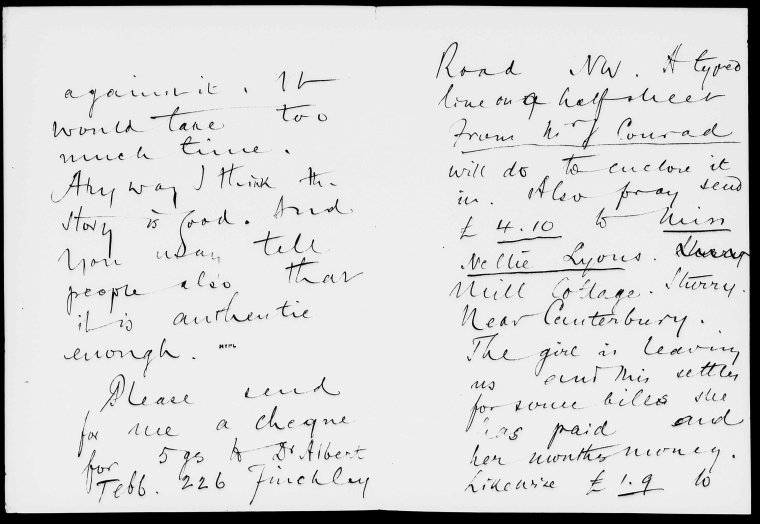 against it. It
would take too
much time.
Any way I think the
story is good. And
you may tell
people also that
it is authentic
enough.
NYPL
Please send
for me a cheque
for 5 gs to Dr Albert
Tebb. 226 Finchley
Road NW. A typed
line on a half sheet
From Mr J Conrad
will do to enclose it
in. Also pray send
£ 4.10 to Miss
Nellie Lyons.
Mill Cottage. Sturry.
Near Canterbury.
The girl is leaving
us and this settles
for some bills she
has paid and
her months money.
Likewise £ 1.9 to